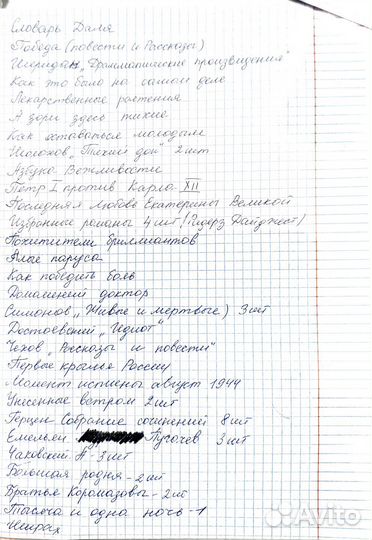 Словарь Даля
Победа (повести и Рассказы)
Шеридан "Драмматические произведения"
Как это было на самом деле
Лекарственные растения
А зори здесь тихие
Как оставаться молодым
Шолохов "Тихий дон" 2 шт
Азбука Вежливости
Петр I против Карла XII
Последняя Любовь Екатерины Великой
Избранные романы 4 шт (Ридерз Дайджест)
Похитители бриллиантов
Алые паруса
Как победить боль
Домашний доктор
Симонов "Живые и мертвые) 3 шт
Достоевский "Идиот"
Чехов "Рассказы и повести"
Первые крылья России
Момент истины август 1944
Унесенные ветром 2 шт
Герцен Собрание сочинений 8 шт
Емельян Пугачев 3 шт
Чаковский А - 3 шт
Большая родня - 2 шт
Братья Карамазовы - 2 шт
Тысяча и одна ночь - 1
Шихрах
Avito